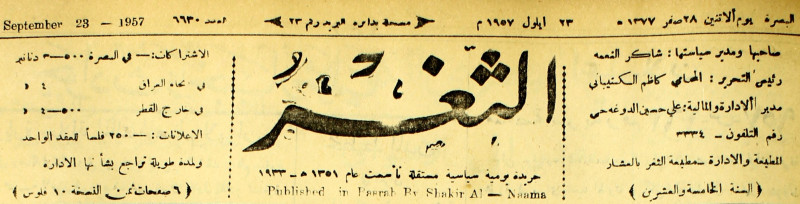 البصرة يوم ألاثنين ٢٨ صفر ١٣٧٧ ه
٢٣ ايلول ١٩٥٧ م
مسجلة بدائرة البريد رقم ٢٣
العدد ٦٦٣٠
September 23 - 1957
صاحبها ومدير سياستها : شاكر النعمه
رئيس التحرير : المحامي كاظم الكتيباني
مدير ألادارة والمالية : علي حسين الدوغه جي
رقم التلفون - ٣٣٣٤
المطبعة والادارة - مطبعة الثغر بالعشار
( السنة الخامسة والعشرين )
الثغر
جريدة يومية سياسية مستقلة تأسست عام ١٣٥١ ه - ١٩٣٣
Published in Basrah By Shakir Al - Naama
الاشتراكات : — في البصرة ٥٠٠—٣ دنانير
في انحاء العراق ٤ «
في خارج القطر ٥٠٠—٤ «
الاعلانات : — ٢٥٠ فلساً للعقد الواحد
ولمدة طويلة تراجع بشأنها الادارة
( ٦ صفحات ثمن النسخة ١٠ فلوس )